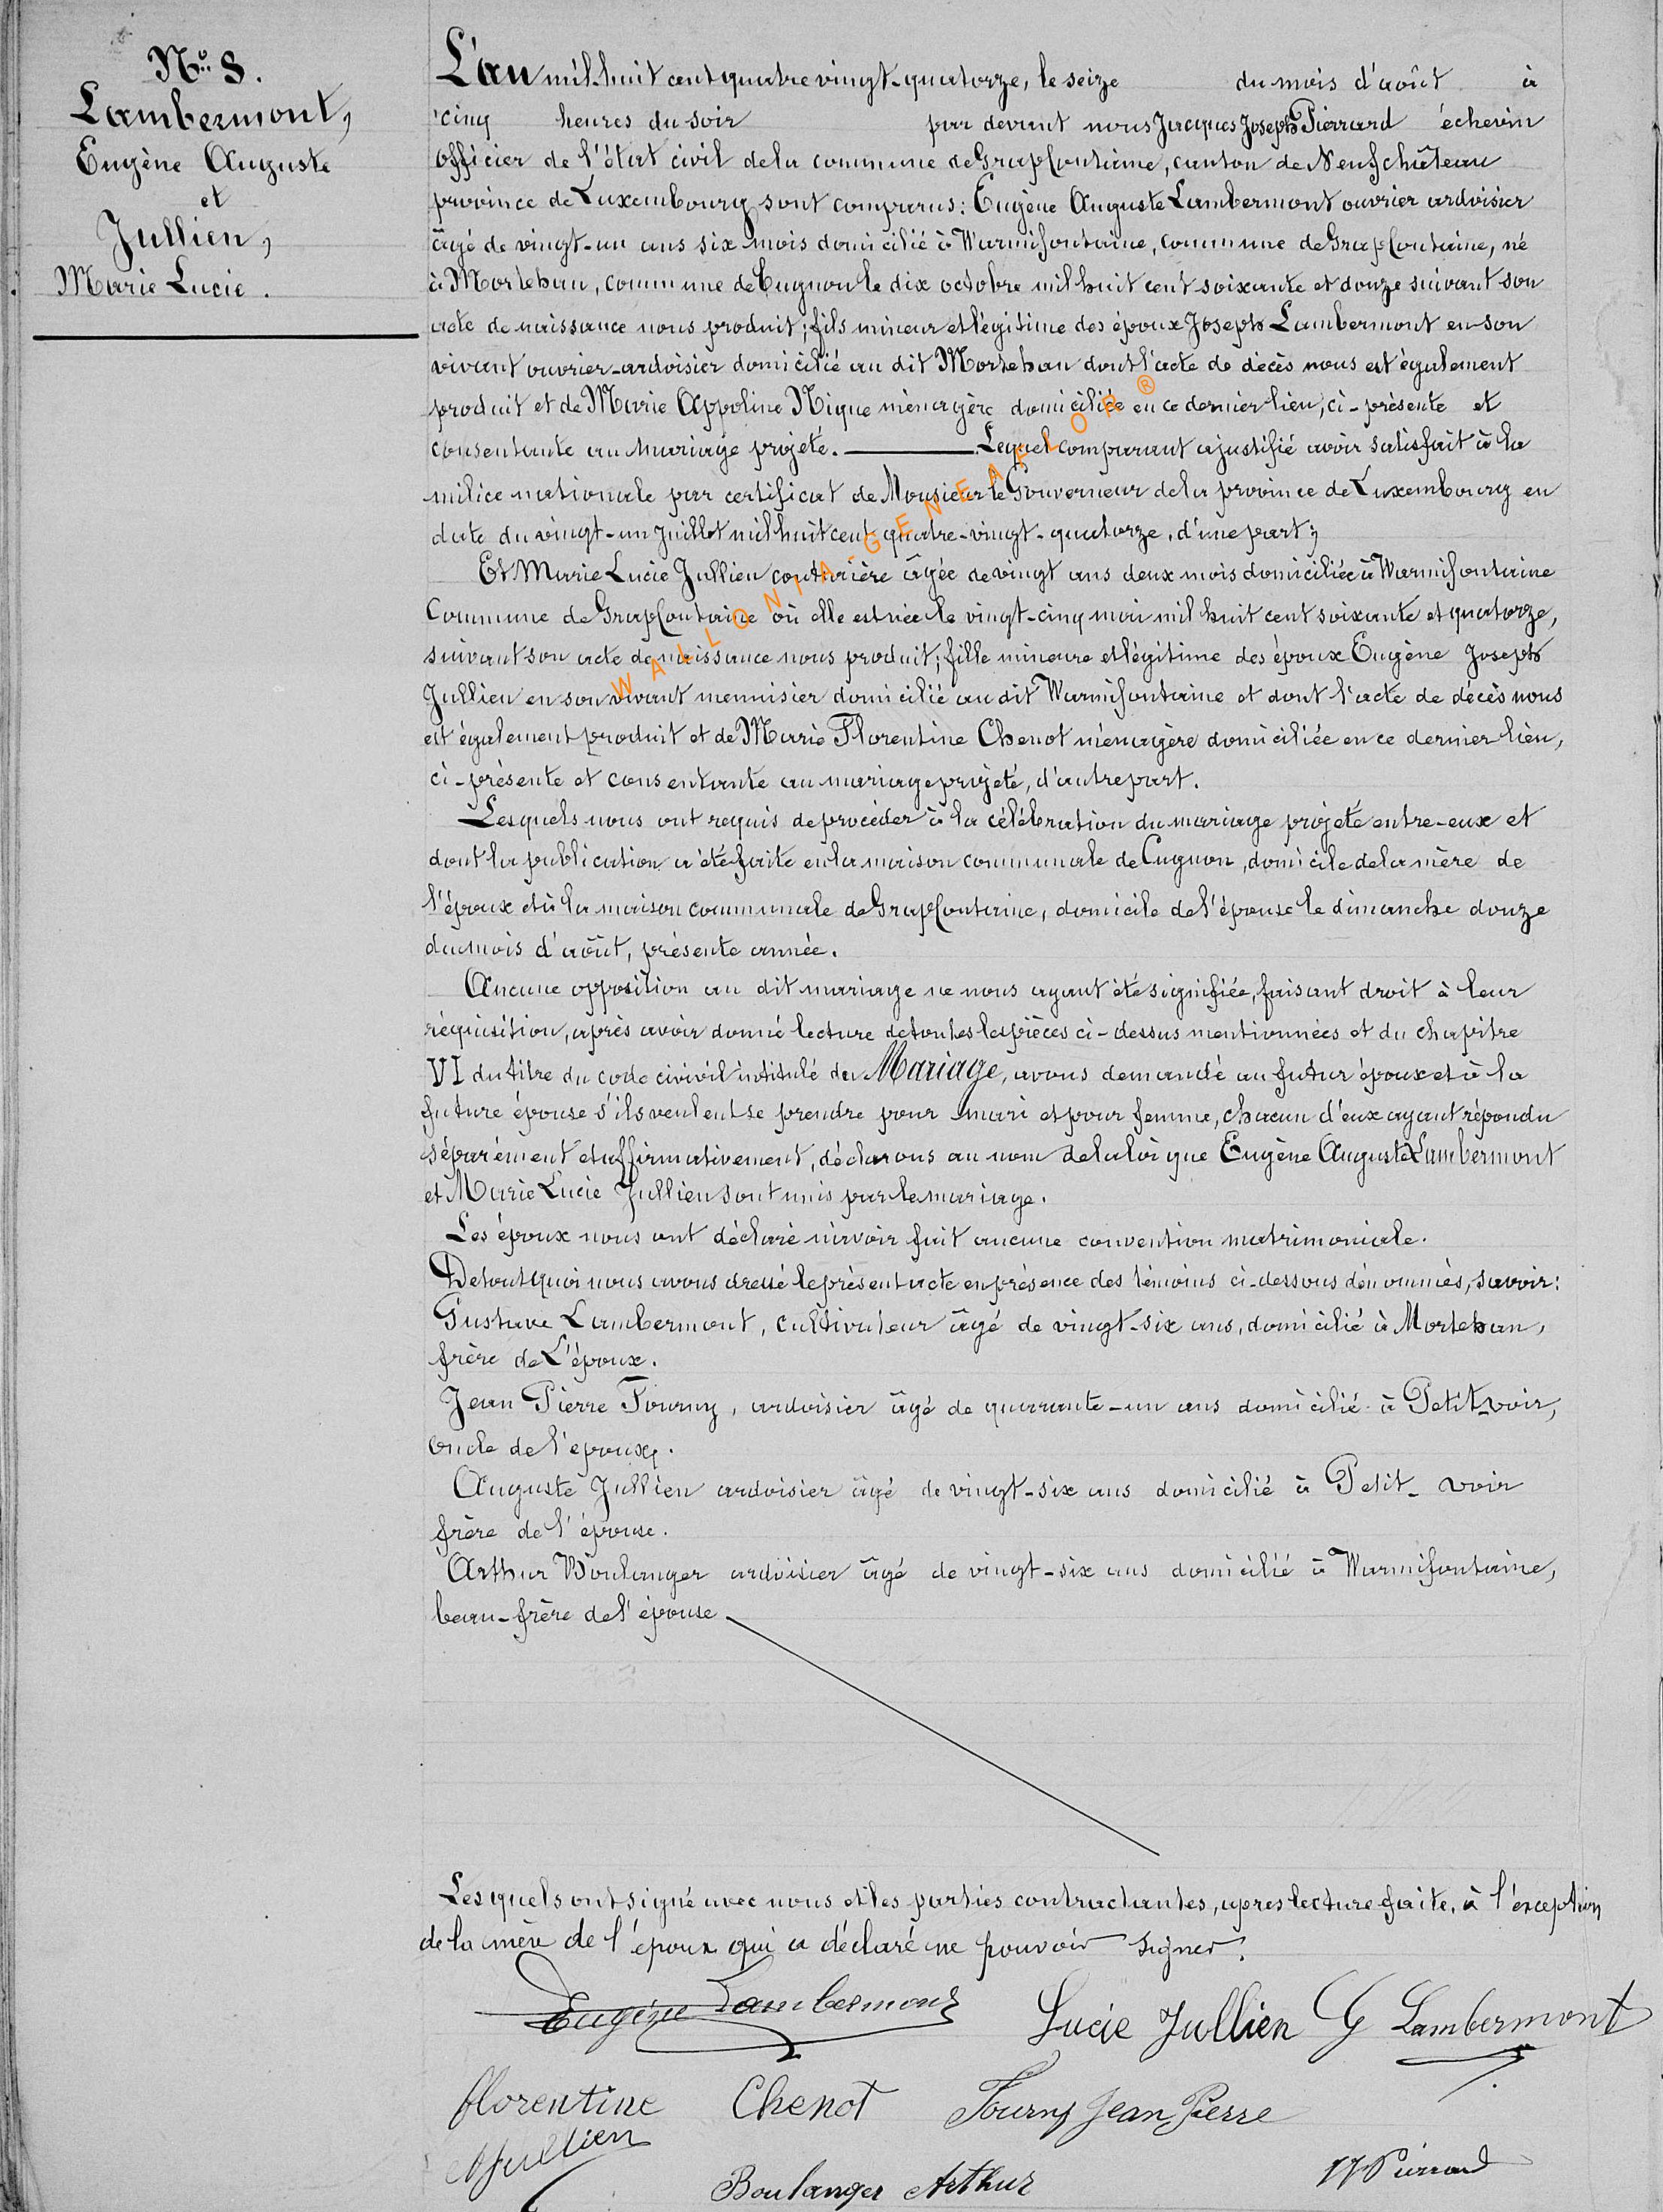 N° 8.
Lambermont,
Eugène Auguste
et
Jullien,
Marie Lucie.
L'an mil-huit cent quatre vingt-quatorze, le seize du mois d'août à
cinq heures du soir par devant nous Jacques Joseph Pierrard échevin
officier de l'état civil de la commune de Grapfontaine, canton de Neufchâteau
province de Luxembourg sont comparus: Eugène Auguste Lambermont ouvrier ardoisier
âgé de vingt-un ans six mois domicilié à Warmifontaine, commune de Grapfontaine, né
à Mortehan, commune de Cugnon le dix octobre mil huit cent soixante et douze suivant son
acte de naissance nous produit; fils mineur et légitime des époux Joseph Lambermont en son
vivant ouvrier-ardoisier domicilié au dit Mortehan dont l'acte de décès nous est également
produit et de Marie Appoline Nique ménagère domiciliée en ce dernier lieu, ci-présente et
consentante au mariage projeté. Lequel comparant a justifié avoir satisfait à la
milice nationale par certificat de Monsieur le Gouverneur de la province de Luxembourg en
date du vingt-un Juillet mil huit cent quatre-vingt-quatorze, d'une part;
Et Marie Lucie Jullien couturière âgée de vingt ans deux mois domiciliée à Warmifontaine
Commune de Grapfontaine où elle est née le vingt-cinq mai mil huit cent soixante et quatorze,
suivant son acte de naissance nous produit; fille mineure et légitime des époux Eugène Joseph
Jullien en son vivant menuisier domicilié au dit Warmifontaine et dont l'acte de décès nous
est également produit et de Marie Florentine Chenot ménagère domiciliée en ce dernier lieu,
ci-présente et consentante au mariage projeté, d'autre part.
Lesquels nous ont requis de procéder à la célébration du mariage projeté entre-eux et
dont la publication a été faite en la maison communale de Cugnon, domicile de la mère de
l'époux et à la maison communale de Grapfontaine, domicile de l'épouse le dimanche douze
du mois d'août, présente année.
Aucune opposition au dit mariage ne nous ayant été signifiée, faisant droit à leur
réquisition, après avoir donné lecture de toutes les pièces ci-dessus mentionnées et du chapitre
VI du titre du code civivil intitulé du Mariage, avons demandé au futur époux et à la
future épouse s'ils veulent se prendre pour mari et pour femme, chacun d'eux ayant répondu
séparément et affirmativement, déclarons au nom de la loi que Eugène Auguste Lambermont
et Marie Lucie Jullien sont unis par le mariage.
Les époux nous ont déclaré n'avoir fait aucune convention matrimoniale.
De tout quoi nous avons dressé le présent acte en présence des témoins ci-dessous dénommés, savoir:
Gustave Lambermont, cultivateur âgé de vingt-six ans, domicilié à Mortehan,
frère de L'époux.
Jean Pierre Fourny, ardoisier âgé de quarante-un ans domicilié à Petit-voir,
oncle de l'époux.
Auguste Jullien ardoisier âgé de vingt-six ans domicilié à Petit-voir
frère de l'épouse.
Arthur Boulanger ardoisier âgé de vingt-six ans domicilié à Warmifontaine,
beau-frère de l'épouse
Lesquels ont signé avec nous et les parties contractantes, apres lecture faite, à l'exception
de la mère de l'époux qui a déclaré ne pouvoir signer.
Eugène Lambermont Lucie Jullien G Lambermont
florentine Chenot Fourny Jean Pierre
A Jullien
Boulanger Arthur JJ Pierrard
WALLONIA-GENEAFLOR®